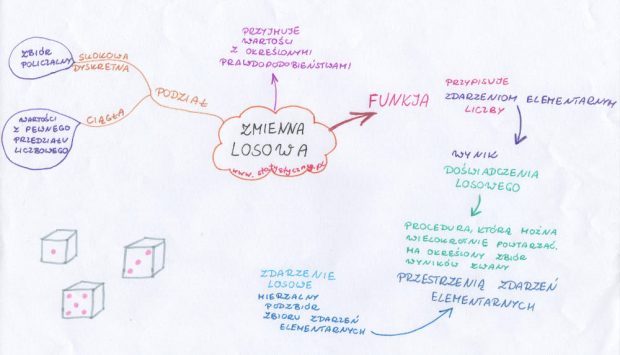 ZBIÓR
POLICZALNY
SKOKOWA
DYSKRETNA
WARTOŚCI
Z PEWNEGO
PRZEDZIAŁU
LICZBOWEGO
CIĄGŁA
PODZIAŁ
PRZYJMUJE
WARTOŚCI
Z OKREŚLONYMI
PRAWDOPODOBIEŃSTWAMI
ZMIENNA
LOSOWA
www.statystyczny.pl
FUNKJA
PRZYPISUJE
ZDARZENIOM ELEMENTARNYM
LICZBY
WYNIK
DOŚWIADCZENIA
LOSOWEGO
PROCEDURA, KTÓRĄ MOŻNA
WIELOKROTNIE POWTARZAĆ.
MA OKREŚLONY ZBIÓR
WYNIKÓW ZWANY
PRZESTRZENIĄ ZDARZEŃ
ELEMENTARNYCH
ZDARZENIE
LOSOWE
MIERZALNY
PODZBIÓR
ZBIORU ZDARZEŃ
ELEMENTARNYCH